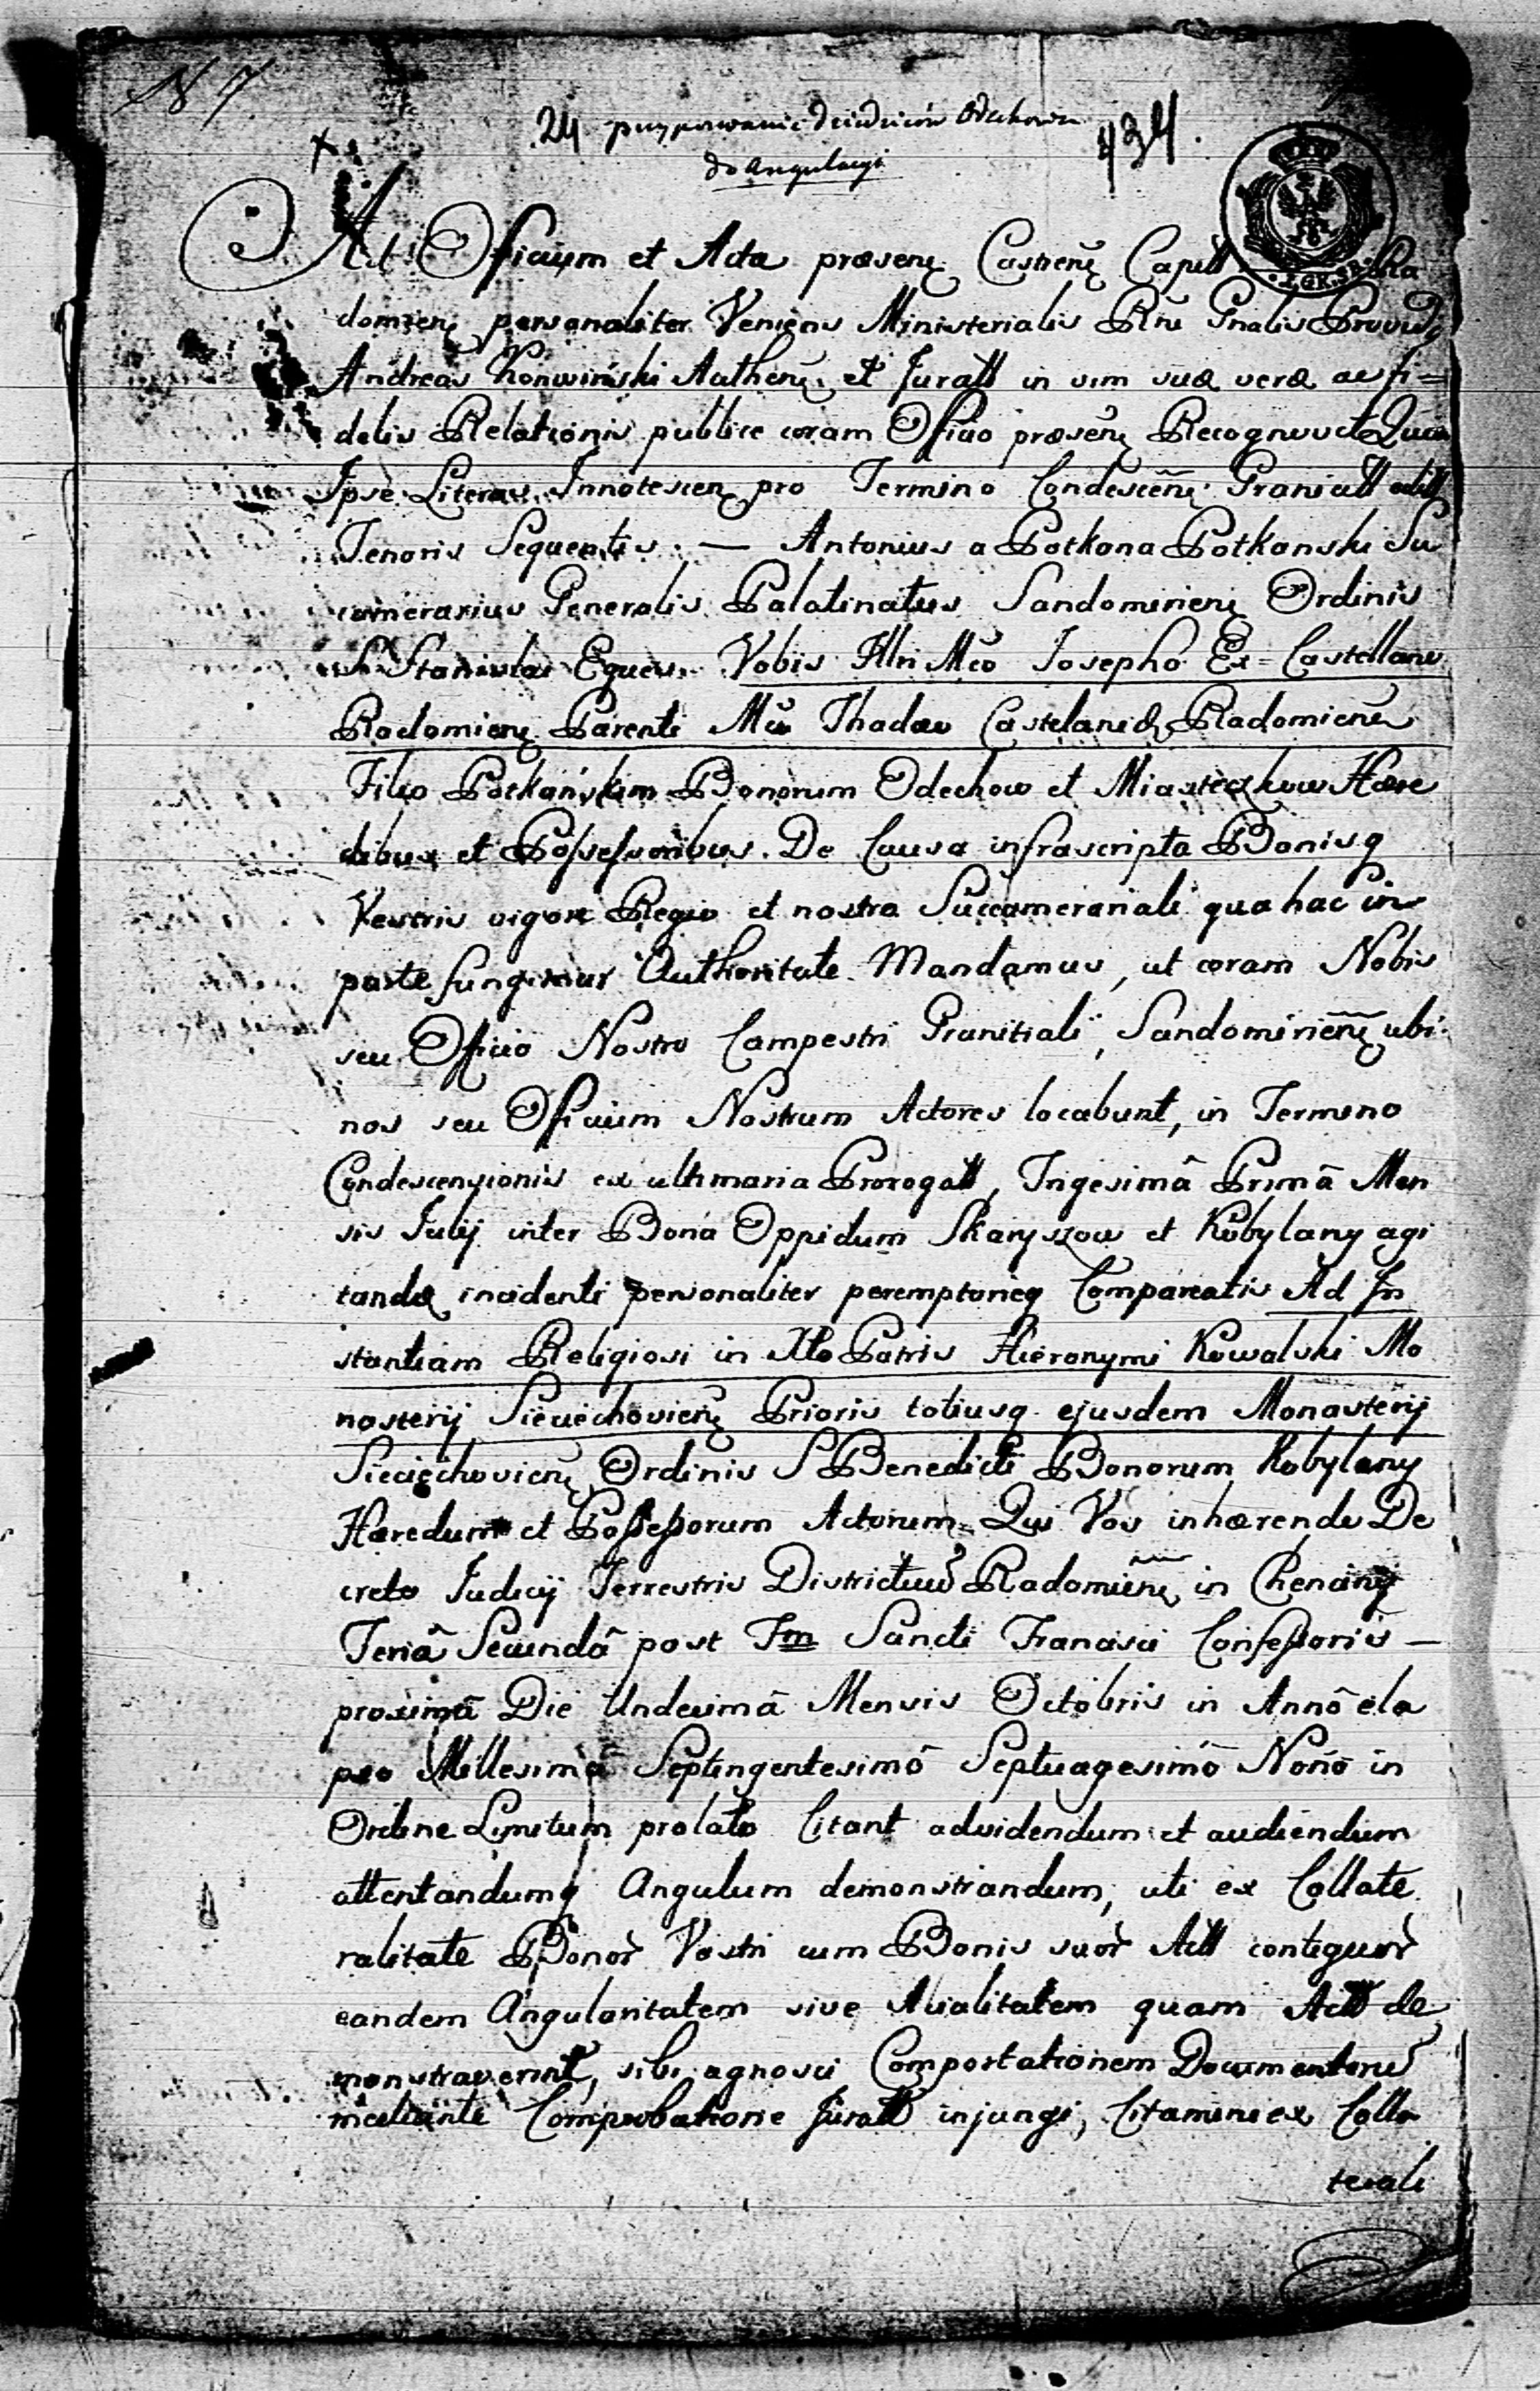 N 7
24 przypozwanie dziedziców Odechowa 434.
do angulacyi
Ad Officium et Acta præsenę Castrenę Capitt Ra
domienę personaliter Veniens Ministerialis Rni Gnalis Provid9
Andreas Konwiński Authenę et Juratt in vim suæ veræ ac fi=
delis Relationis publice coram Officio præsenę Recognovit Quia
Ipse Literas Innotescenę pro Termino Condescenę Graniatt editt
Tenoris Sequentis. — Antonius a Potkana Potkanski Su
camerarius Generalis Palatinatus Sandomirienę Ordinis
S Stanislai Eques. Vobis Illri Mco Josepho Ex=Castellano
Radomienę Parenti Mco Thadæo Castelanidæ Radomienę
Filio Potkańskim Bonorum Odechow et Miasteczkow Hære
dibus et Possessoribus. De Causa infrascripta Bonisq
Vestris vigore Regia et nostra Succamerariali qua hac in
parte fungimur Authoritate Mandamus, ut coram Nobis
seu Officio Nostro Campestri Granitiali, Sandomirienę ubi
nos seu Officium Nostrum Actores locabunt, in Termino
Condescensionis ex ultimaria Prorogatt, Trigesimâ Primâ Men
sis Julij inter Bona Oppidum Skaryszow et Kobylany agi
tandæ incidenti personaliter peremptorieq Compareatis Ad In
stantiam Religiosi in Xto Patris Hieronymi Kowalski Mo
nasterij Sieciechovienę Prioris totiusq ejusdem Monasterij
Sieciechovienę Ordinis S Benedicti Bonorum Kobylany
Hæredum et Possessorum Actorum Qui Vos inhærendo De
creto Judicij Terrestris Districtus Radomienę in Chenciny
Feriâ Secundâ post Fm Sancti Francisci Confessoris —
proximâ Die Undecimâ Mensis Octobris in Annô ela
pso Millesimô Septingentesimô Septuagesimô Nonô in
Ordine Limitum prolato Citant ad videndum et audiendum
attentandumq Angulum demonstrandum, uti ex Collate
ralitate Bonor Vestri cum Bonis suor Actt contiguor
eandem Angularitatem sive Acialitatem quam Actt de
monstraverint, sibi agnosci Comportationem Documentoru
mediante Comprobatione Juratt injungi, Citamini ex Colla
terali